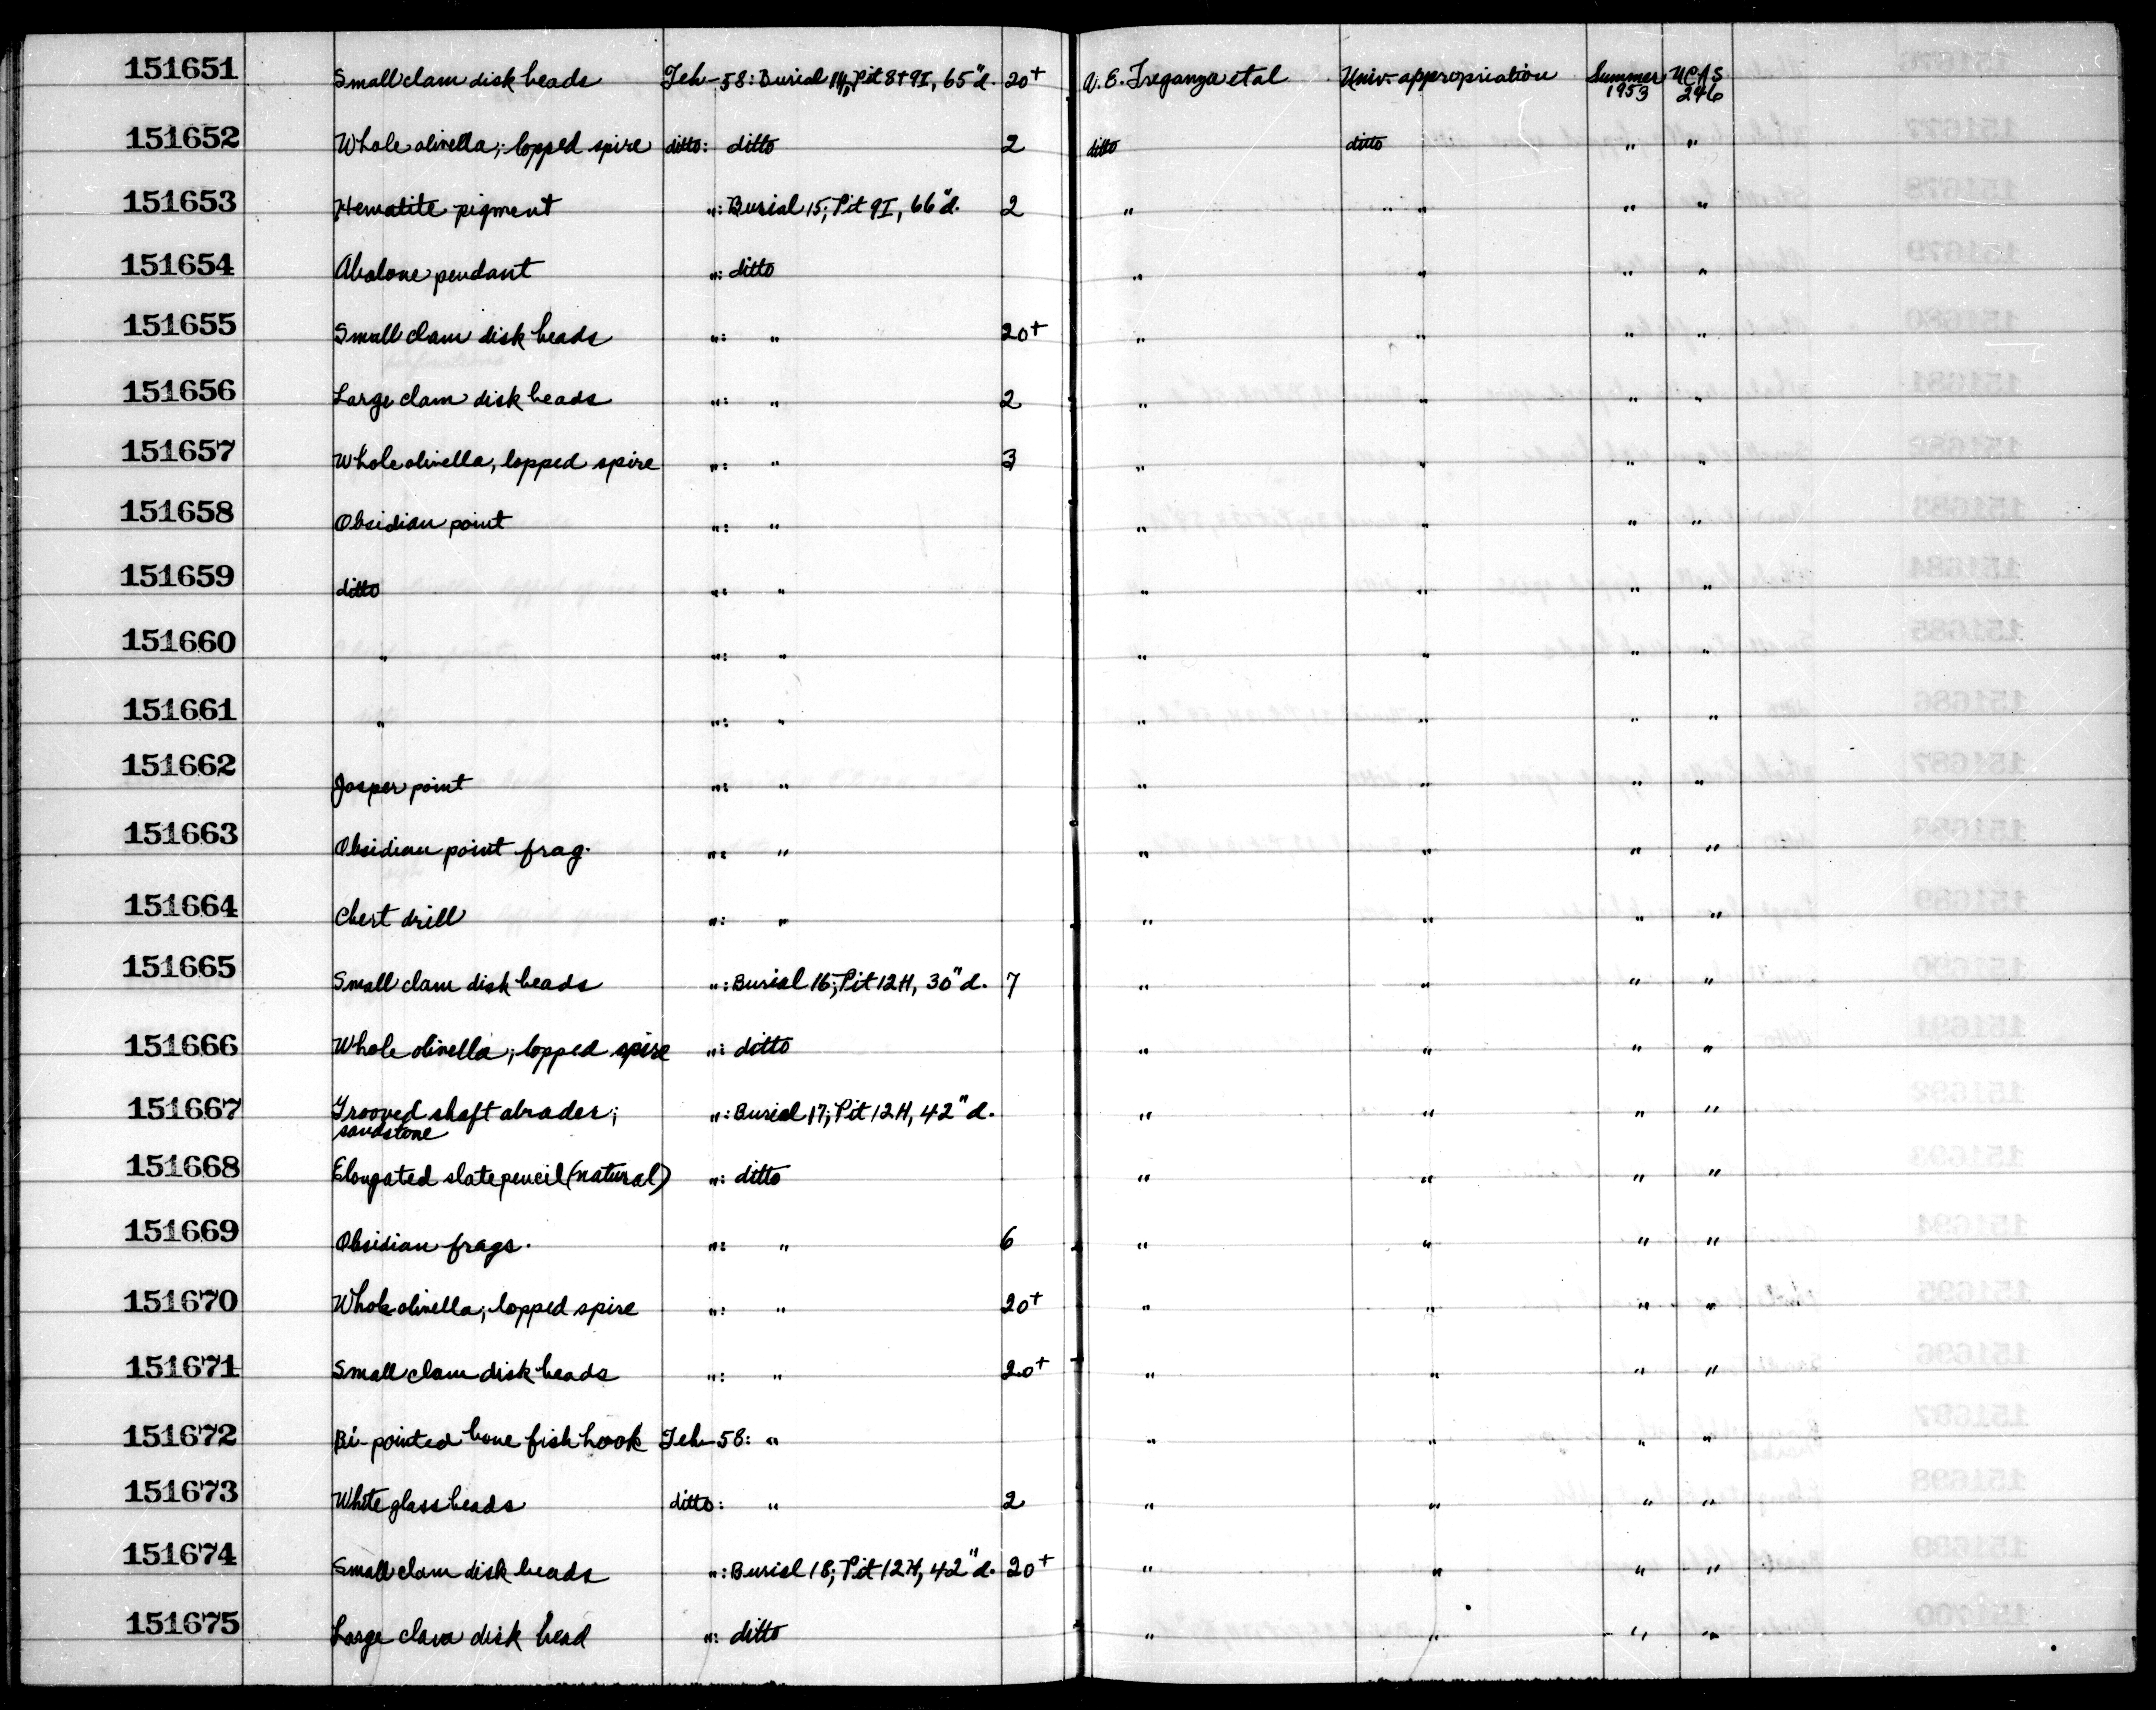 151651 Small clam disk beads Teh-58: Burial 14; Pit 8+9I, 65"d. 20+ A. E. Treganza et al Univ. appropriation Summer 1953 UCAS 246
151652 Whole olivella; lopped spire ditto: ditto 2 ditto ditto " "
151653 Hematite pigment ": Burial 15; Pit 9I, 66"d. 2 " " " "
151654 Abalone pendant ": ditto " " " "
151655 Small clam disk beads ": " 20+ " " " "
151656 Large clam disk beads ": " 2 " " " "
151657 Whole olivella, lopped spire ": " 3 " " " "
151658 Obsidian point ": " " " " "
151659 ditto ": " " " " "
151660 " ": " " " " "
151661 " ": " " " " "
151662 Jasper point ": " " " " "
151663 Obsidian point frag. ": " " " " "
151664 Chert drill ": " " " " "
151665 Small clam disk beads ": Burial 16; Pit 12H, 30"d. 7 " " " "
151666 Whole olivella; lopped spire ": ditto " " " "
151667 Grooved shaft abrader; ": Burial 17; Pit 12H, 42"d. " " " "
sandstone
151668 Elongated slate pencil (natural) ": ditto " " " "
151669 Obsidian frags. ": " 6 " " " "
151670 Whole olivella; lopped spire ": " 20+ " " " "
151671 Small clam disk beads ": " 20+ " " " "
151672 Bi-pointed bone fish hook Teh-58: " " " " "
151673 White glass beads ditto: " 2 " " " "
151674 Small clam disk beads ": Burial 18; Pit 12H, 42"d. 20+ " " " "
151675 Large clam disk bead ": ditto " " " "